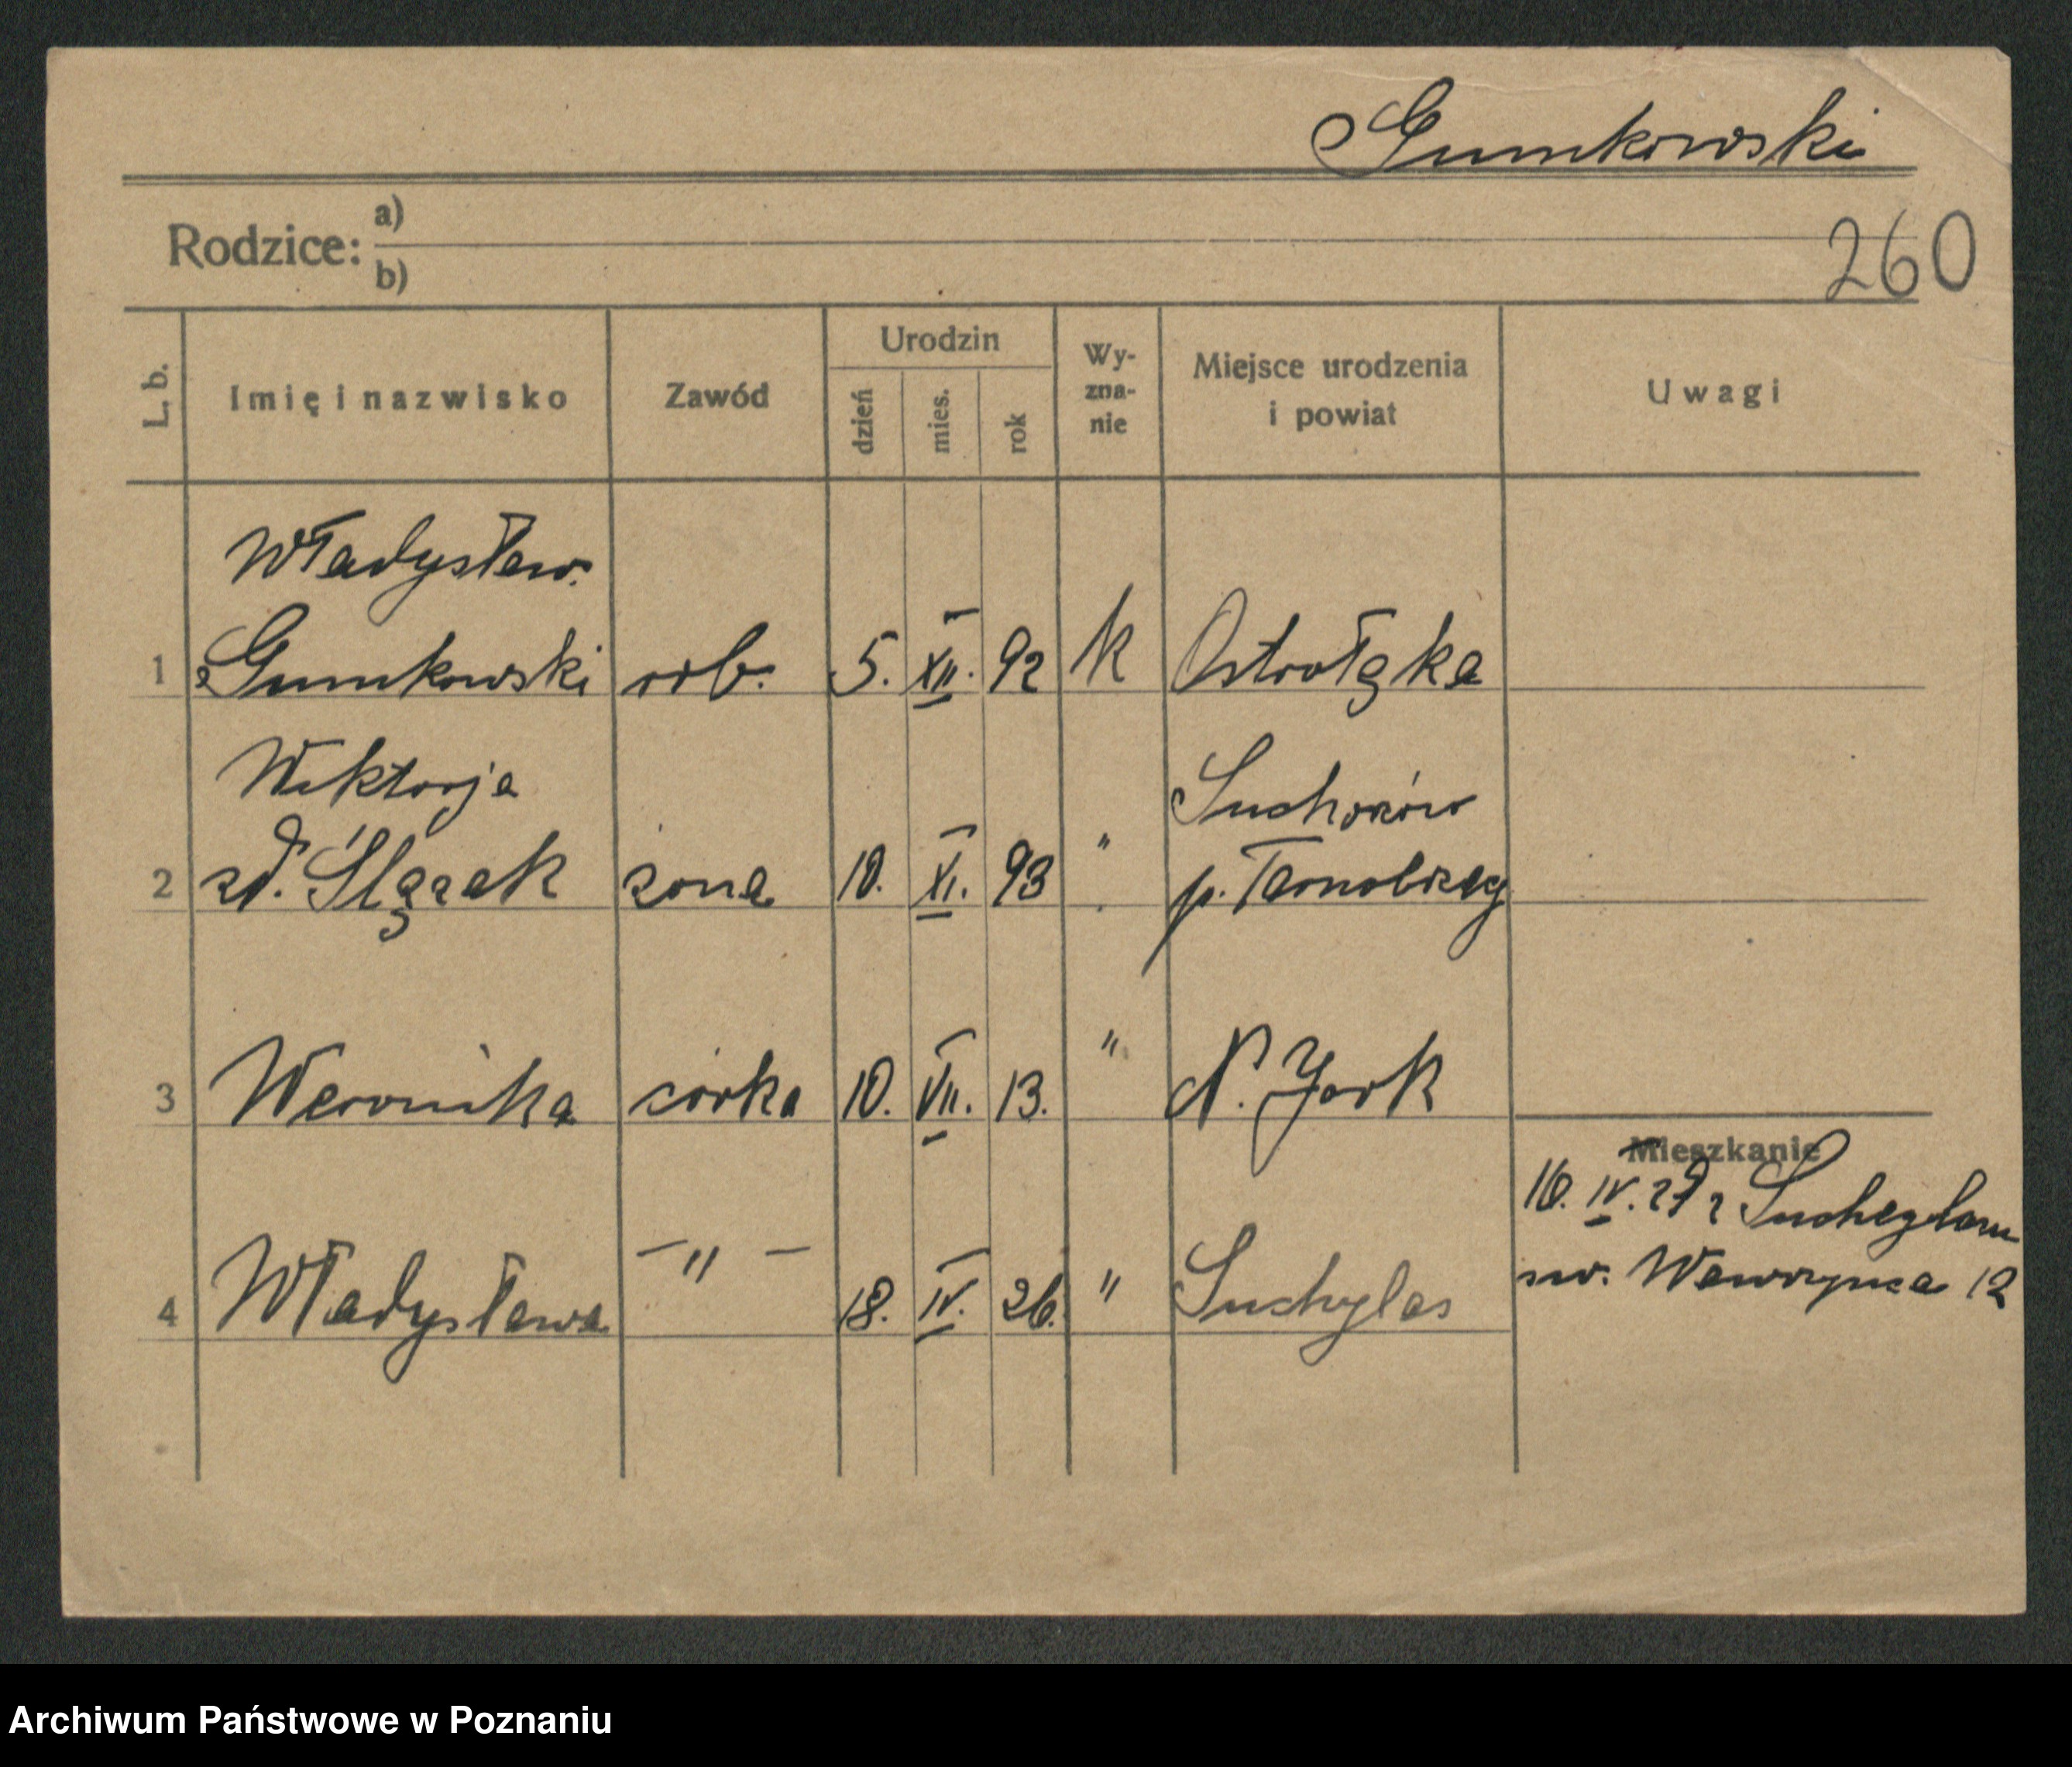 Gumkowski
Rodzice: a)
b)
260
L. b.
Imię i nazwisko
Zawód
Urodzin
dzień
mies.
rok
Wy-
zna-
nie
Miejsce urodzenia
i powiat
Uwagi
Władysław
1 Gumkowski rob. 5. XII. 92 k Ostrołęka
Wiktorja Suchorzów
2 zd. Ślązak żona 10. XI. 93 " p. Tarnobrzeg
3 Weronika córka 10. VII. 13. " N. York
Mieszkanie
16. IV. 27 z Suchegolasu
św. Wawrzyńca 12
4 Władysława — " — 18. IV. 26. " Suchylas
Archiwum Państwowe w Poznaniu